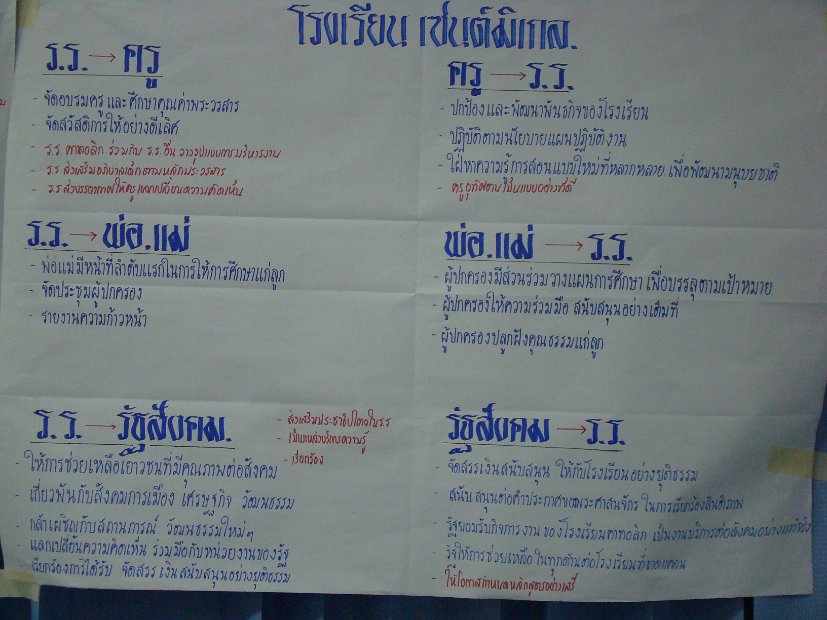 โรงเรียน เซนต์มิเกล.
ร.ร. → ครู
- จัดอบรมครู และศึกษาคุณค่าพระวรสาร
- จัดสวัสดิการให้อย่างดีเลิศ
- ร.ร. คาทอลิก ร่วมกับ ร.ร. อื่น วางรูปแบบการบริหารงาน
- ร.ร ส่งเสริมอภิบาลเด็กตามหลักพระวรสาร
- ร.ร สร้างบรรยากาศให้ครูแลกเปลี่ยนความคิดเห็น
ครู → ร.ร.
- ปกป้องและพัฒนาพันธกิจของโรงเรียน
- ปฏิบัติตามนโยบายแผนปฏิบัติงาน
- ใฝ่หาความรู้การสอนแบบใหม่ที่หลากหลาย เพื่อพัฒนามนุษยชาติ
- ครูอุทิศตน เป็นแบบอย่างที่ดี
ร.ร. → พ่อ.แม่
- พ่อแม่มีหน้าที่ลำดับแรกในการให้การศึกษาแก่ลูก
- จัดประชุมผู้ปกครอง
- รายงานความก้าวหน้า
พ่อ.แม่ → ร.ร.
- ผู้ปกครองมีส่วนร่วมวางแผนการศึกษา เพื่อบรรลุตามเป้าหมาย.
- ผู้ปกครองให้ความร่วมมือ สนับสนุนอย่างเต็มที่
- ผู้ปกครองปลูกฝังคุณธรรมแก่ลูก
ร.ร. → รัฐสังคม.
- ส่งเสริมประชาธิปไตยใน ร.ร
- เป็นแหล่งบริการความรู้
- เรียกร้อง
- ให้การช่วยเหลือเยาวชนที่มีคุณภาพต่อสังคม
- เกี่ยวพันกับสังคมการเมือง เศรษฐกิจ วัฒนธรรม
- กล้าเผชิญกับสถานการณ์ วัฒนธรรมใหม่ๆ
- แลกเปลี่ยนความคิดเห็น ร่วมมือกับหน่วยงานของรัฐ
- เรียกร้องการได้รับ จัดสรร เงินสนับสนุนอย่างยุติธรรม
รัฐสังคม → ร.ร.
- จัดสรรเงินสนับสนุน ให้กับโรงเรียนอย่างยุติธรรม
- สนับสนุนต่อคำประกาศของพระศาสนจักร ในการเรียกร้องสันติภาพ
- รัฐยอมรับกิจการงาน ของโรงเรียนคาทอลิก เป็นงานบริการต่อสังคมอย่างแท้จริง
- รัฐให้การช่วยเหลือ ในทุกด้านต่อโรงเรียนที่ขาดแคลน
- ให้โอกาสกำหนดหลักสูตรอย่างเสรี